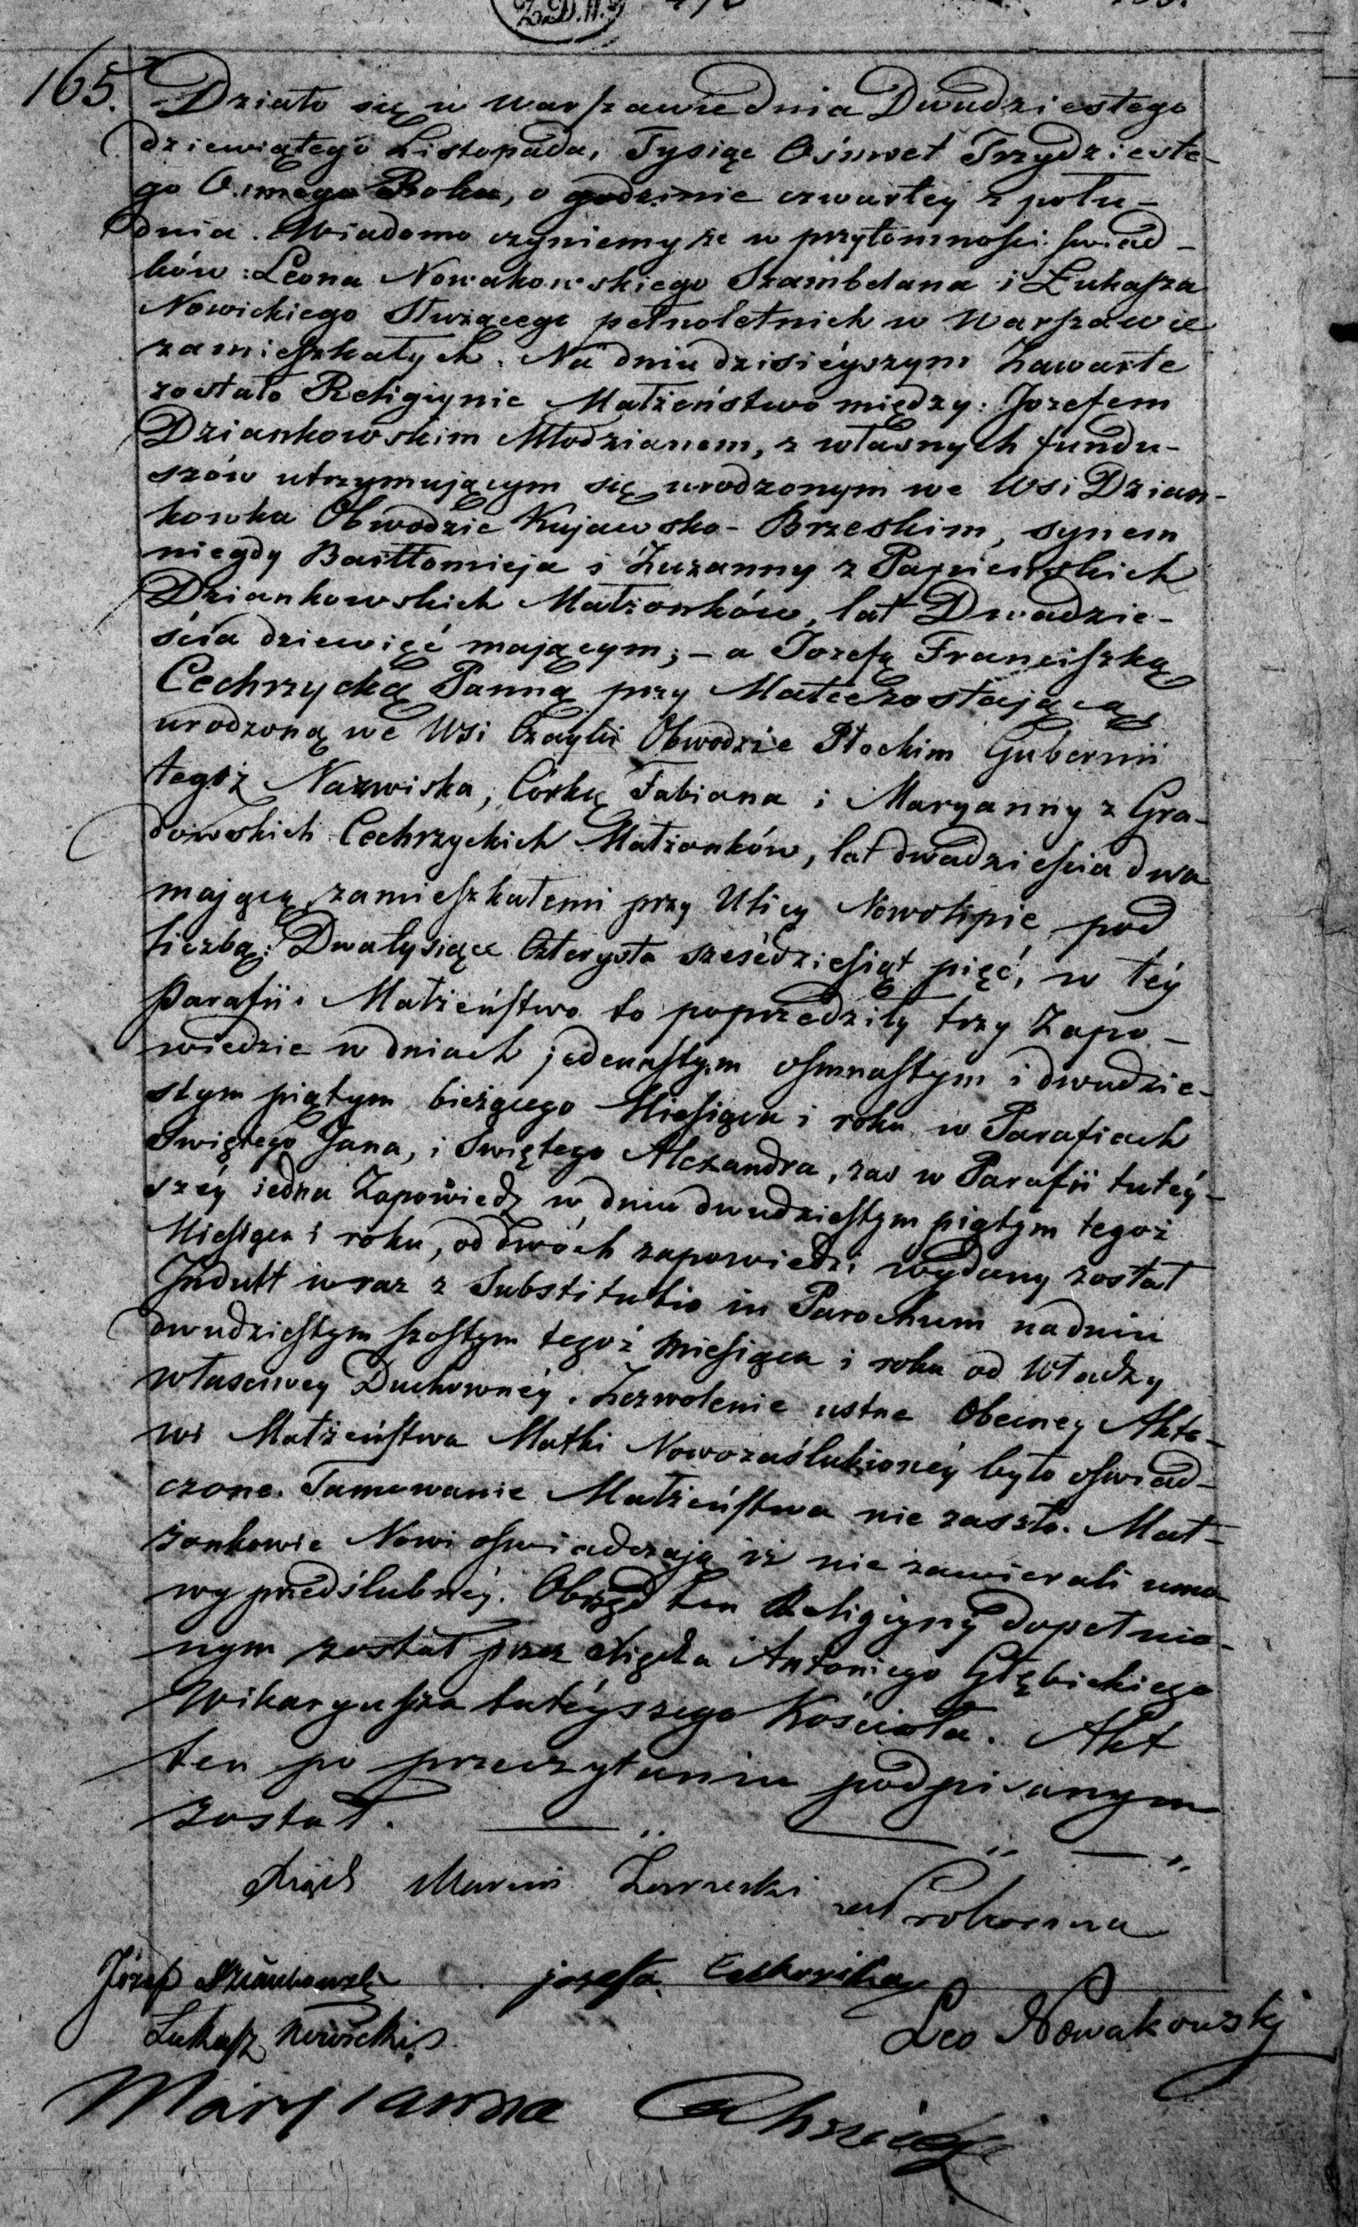 Z.D.W.
165.
Działo się w Warszawie dnia Dwudziestego
dziewiątego Listopada, Tysiąc Ośmset Trzydzieste-
go Osmego Roku, o godzinie czwartey z połu-
dnia. Wiadomo czyniemy że w przytomności świad-
ków: Leona Nowakowskiego Szambelana i Łukasza
Nowickiego Służącego pełnoletnich w Warszawie
zamieszkałych. Na dniu dzisiéyszym Zawarte
zostało Religiynie Małżeństwo między: Jozefem
Dziankowskim Młodzianem, z własnych fundu-
szów utrzymującym się urodzonym we Wsi Dzian-
kowka Obwodzie Kujawsko-Brzeskim, synem
niegdy Bartłomieja i Zuzanny z
Dziankowskich Małżonków, lat Dwadzie-
ścia dziewięć mającym; – a Jozefą Franciszką
Cechrzycką Panną przy Matce zostającą
urodzoną we Wsi Obwodzie Płockim Gubernii
tegoż Nazwiska, Córką Fabiana i Maryanny z Gra-
dowskich Cechrzyckich Małżonków, lat dwadzieścia dwa
mającą, zamieszkałemi przy Ulicy Nowolipie pod
liczbą: Dwatysiące Czterysta sześćdziesiąt pięć, w téy
Parafii. Małżeństwo to poprzedziły trzy Zapo-
wiedzie w dniach jedenastym osmnastym i dwudzie-
stym piątym bieżącego Miesiąca i roku w Parafiach
Świętego Jana, i Świętego Alexandra, zaś w Parafii tutéy-
széy jedna Zapowiedź w dniu dwudziestym piątym tegoż
Miesiąca i roku, od dwóch zapowiedzi wydany został
Indult wraz z Substitutio in Parochum na dniu
dwudziestym szostym tegoż Miesiąca i roku od Władzy
właściwey Duchownéy. Zezwolenie ustne Obecney Akto-
wi Małżeństwa Matki Nowozaślubionéy było oświad-
czone. Tamowanie Małżeństwa nie zaszło. Mał-
żonkowie Nowi oświadczają iż nie zawierali umo-
wy przedślubnéy. Obrządek ten Religiyny dopełnio-
nym został przez Xiędza Antoniego Głębickiego
Wikaryusza tutéyszego Kościoła. Akt
ten po przeczytaniu podpisanym
został.
Xiądz Marcin Zast Proboszcza
Józef Dziankowski Jozefa
Łukasz Nowicki Leo Nowakowski
Maryianna